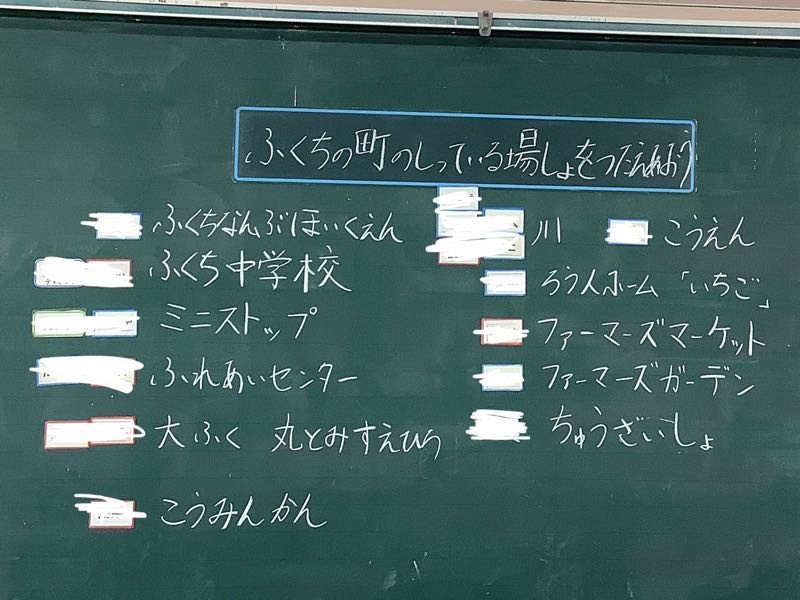 ふくちの町のしっている場しょをつたえあおう
ふくちなんぶほいくえん
ふくち中学校
ミニストップ
ふれあいセンター
大ふく 丸とみすえひろ
こうみんかん
川
こうえん
ろう人ホーム「いちご」
ファーマーズマーケット
ファーマーズガーデン
ちゅうざいしょ